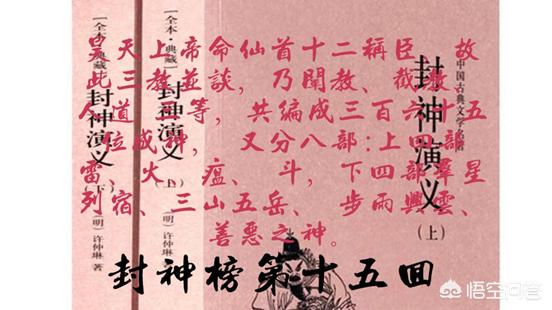 昊天上帝命仙首十二稱臣 故
此三教並談，乃闡教、截教、
人道三等，共編成三百六十五
位成神， 又分八部：上四部
雷、火、瘟、斗，下四部羣星
列宿、三山五岳、步雨興雲、
善惡之神。
封神榜第十五回
[全本·典藏]
封神演义
(下)
(明) 许仲琳 著
[全本·典藏]
封神演义
(明) 许仲琳 著
中国古典文学名著
封神演义
(上)
悟空问答